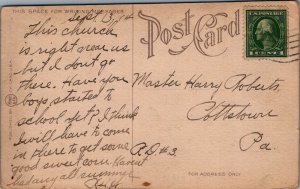 THIS SPACE FOR WRITING MESSAGES
Post Card
Sept 13
This church
is right near us
but I don't go
there. Have you
boys started to
school yet? I think
I will have to come
in there to get some
good sweet corn. Havent
had any all summer
Master Harry Roberts.
Pottstown
Pa.
R.D. #3.
FOR ADDRESS ONLY
1 CENT 1